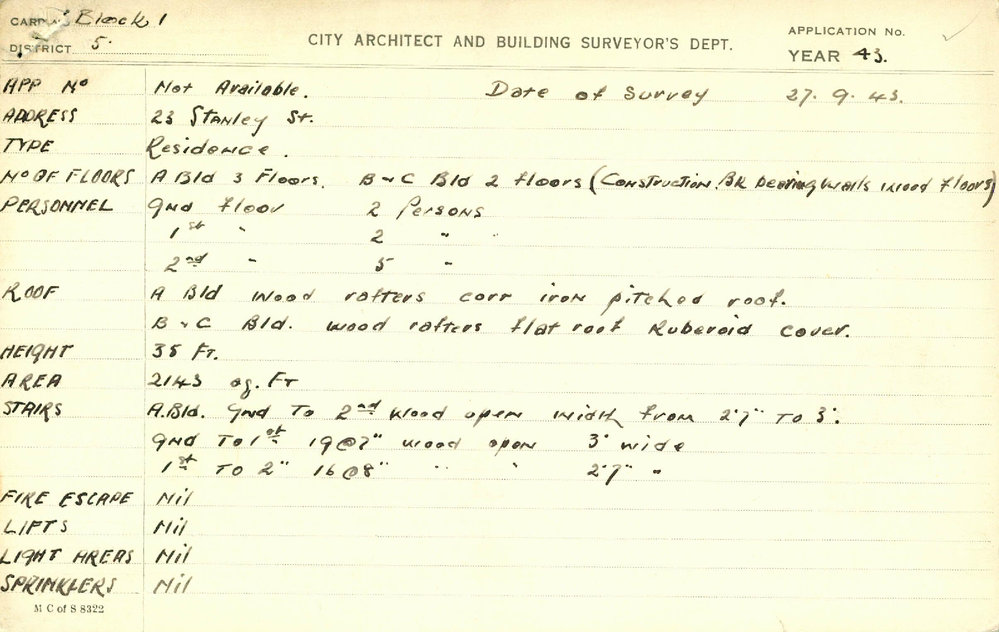 CARD No Block 1
DISTRICT 5.
CITY ARCHITECT AND BUILDING SURVEYOR'S DEPT.
APPLICATION No.
YEAR 43.
APP No Not Available. Date of Survey 27. 9. 43.
ADDRESS 23 Stanley St.
TYPE Residence.
No OF FLOORS A Bld 3 Floors. B & C Bld 2 floors (Construction. Bk bearing walls wood floors)
PERSONNEL Gnd floor 2 Persons
1st " 2 "
2nd " 5 "
ROOF A Bld wood rafters corr iron pitched roof.
B & C Bld. wood rafters flat roof Ruberoid cover.
HEIGHT 35 Ft.
AREA 2143 sq. Ft
STAIRS A. Bld. Gnd To 2nd wood open width from 2'7" To 3'.
Gnd To 1st 19@7" wood open 3' wide
1st To 2" 16@8" " " 2'7" "
FIRE ESCAPE Nil
LIFTS Nil
LIGHT AREAS Nil
SPRINKLERS Nil
M C of S 8322